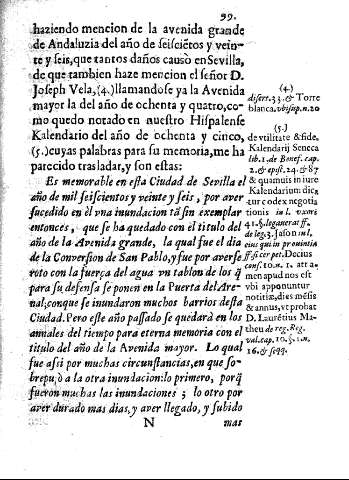 99.
haziendo mencion de la avenida grande
de Andaluzia del año de seisciẽtos y vein-
te y seis, que tantos daños causò en Sevilla,
de que tambien haze mencion el señor D.
Joseph Vela, (4.) llamandose ya la Avenida
mayor la del año de ochenta y quatro, co-
mo quedo notado en nuestro Hispalense
Kalendario del año de ochenta y cinco,
(5.) cuyas palabras para su memoria, me ha
parecido trasladar, y son estas:
Es memorable en esta Ciudad de Sevilla el
año de mil seiscientos y veinte y seis, por aver
sucedido en èl vna inundacion tã sin exemplar
entonces, que se ha quedado con el titulo del
año de la Avenida grande, la qual fue el dia
de la Conversion de San Pablo, y fue por averse
roto con la fuerça del agua vn tablon de los q̃
para su defensa se ponen en la Puerta del Are-
nal; con que se inundaron muchos barrios desta
Ciudad. Pero este año passado se quedarà en los
annales del tiempo para eterna memoria con el
titulo del año de la Avenida mayor. Lo qual
fue assi por muchas circunstancias, en que so-
brepujò a la otra inundacion: lo primero, porq̃
fueron muchas las inundaciones; lo otro por
aver durado mas dias, y aver llegado, y subido
N mas
(4.)
disert. 33. & Torre
blanca, vbi sup. n. 20
(5.)
de vtilitate & fide,
Kalendarij Seneca
lib. 1. de Benef. cap.
2. & epist. 24. & 87
& quamuis in iure
Kalendarium dica
tur codex negotia
tionis in l. vxori
41. §. legauerat ff.
de leg. 3. Jason in l.
eius qui in prouintia
ff. si cer. pet. Decius
cons. 10. n. 1. atta-
men apud nos est
vbi apponuntur
notitiæ, dies mésis
& annus, vt probat
D. Laurētius Ma-
theu de reg. Reg.
val. cap. 10. §. 1. n.
16. & seqq.